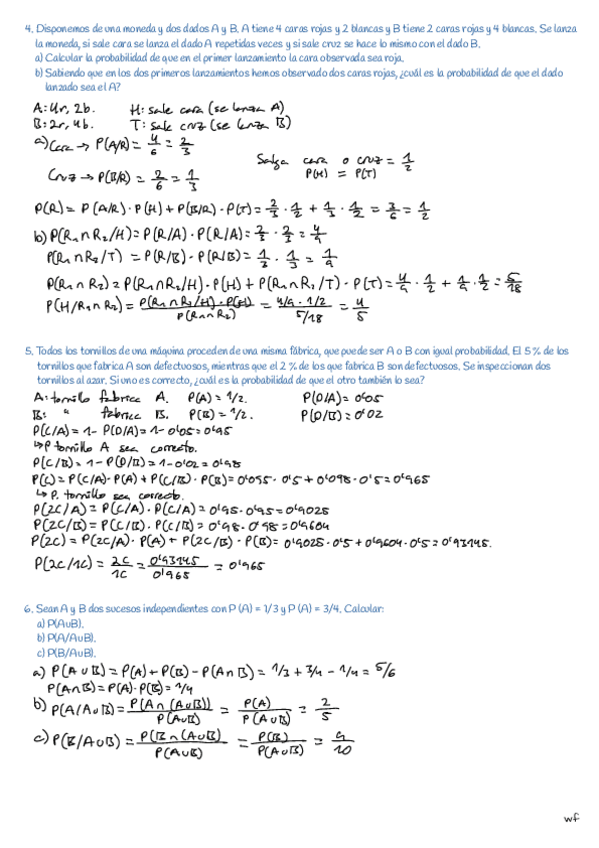 4. Disponemos de una moneda y dos dados A y B. A tiene 4 caras rojas y 2 blancas y B tiene 2 caras rojas y 4 blancas. Se lanza
la moneda, si sale cara se lanza el dado A repetidas veces y si sale cruz se hace lo mismo con el dado B.
a) Calcular la probabilidad de que en el primer lanzamiento la cara observada sea roja.
b) Sabiendo que en los dos primeros lanzamientos hemos observado dos caras rojas, ¿cuál es la probabilidad de que el dado
lanzado sea el A?
A: 4r, 2b. H: sale cara (se lanza A)
B: 2r, 4b. T: sale cruz (se lanza B)
a) Cara → P(A/R) = 4/6 = 2/3
Salga cara o cruz = 1/2
P(H) = P(T)
Cruz → P(B/R) = 2/6 = 1/3
P(R) = P(A/R) · P(H) + P(B/R) · P(T) = 2/3 · 1/2 + 1/3 · 1/2 = 3/6 = 1/2
b) P(R₁∩R₂/H) = P(R/A) · P(R/A) = 2/3 · 2/3 = 4/9
P(R₁∩R₂/T) = P(R/B) · P(R/B) = 1/3 · 1/3 = 1/9
P(R₁∩R₂) = P(R₁∩R₂/H) · P(H) + P(R₁∩R₂/T) · P(T) = 4/9 · 1/2 + 1/9 · 1/2 = 5/18
P(H/R₁∩R₂) = P(R₁∩R₂/H) · P(H) / P(R₁∩R₂) = 4/9 · 1/2 / 5/18 = 4/5
5. Todos los tornillos de una máquina proceden de una misma fábrica, que puede ser A o B con igual probabilidad. El 5 % de los
tornillos que fabrica A son defectuosos, mientras que el 2 % de los que fabrica B son defectuosos. Se inspeccionan dos
tornillos al azar. Si uno es correcto, ¿cuál es la probabilidad de que el otro también lo sea?
A: tornillo fabrica A. P(A) = 1/2. P(D/A) = 0'05
B: " fabrica B. P(B) = 1/2. P(D/B) = 0'02
P(C/A) = 1 - P(D/A) = 1 - 0'05 = 0'95
↳ P tornillo A sea correcto.
P(C/B) = 1 - P(D/B) = 1 - 0'02 = 0'98
P(C) = P(C/A) · P(A) + P(C/B) · P(B) = 0'095 · 0'5 + 0'098 · 0'5 = 0'965
↳ P. tornillo sea correcto.
P(2C/A) = P(C/A) · P(C/A) = 0'95 · 0'95 = 0'9025
P(2C/B) = P(C/B) · P(C/B) = 0'98 · 0'98 = 0'9604
P(2C) = P(2C/A) · P(A) + P(2C/B) · P(B) = 0'9025 · 0'5 + 0'9604 · 0'5 = 0'93145.
P(2C/1C) = 2C/1C = 0'93145/0'965 = 0'965
6. Sean A y B dos sucesos independientes con P (A) = 1/3 y P (A) = 3/4. Calcular:
a) P(A∪B).
b) P(A/A∪B).
c) P(B/A∪B).
a) P(A∪B) = P(A) + P(B) - P(A∩B) = 1/3 + 3/4 - 1/4 = 5/6
P(A∩B) = P(A) · P(B) = 1/4
b) P(A/A∪B) = P(A∩(A∪B)) / P(A∪B) = P(A) / P(A∪B) = 2/5
c) P(B/A∪B) = P(B∩(A∪B)) / P(A∪B) = P(B) / P(A∪B) = 9/10
wf